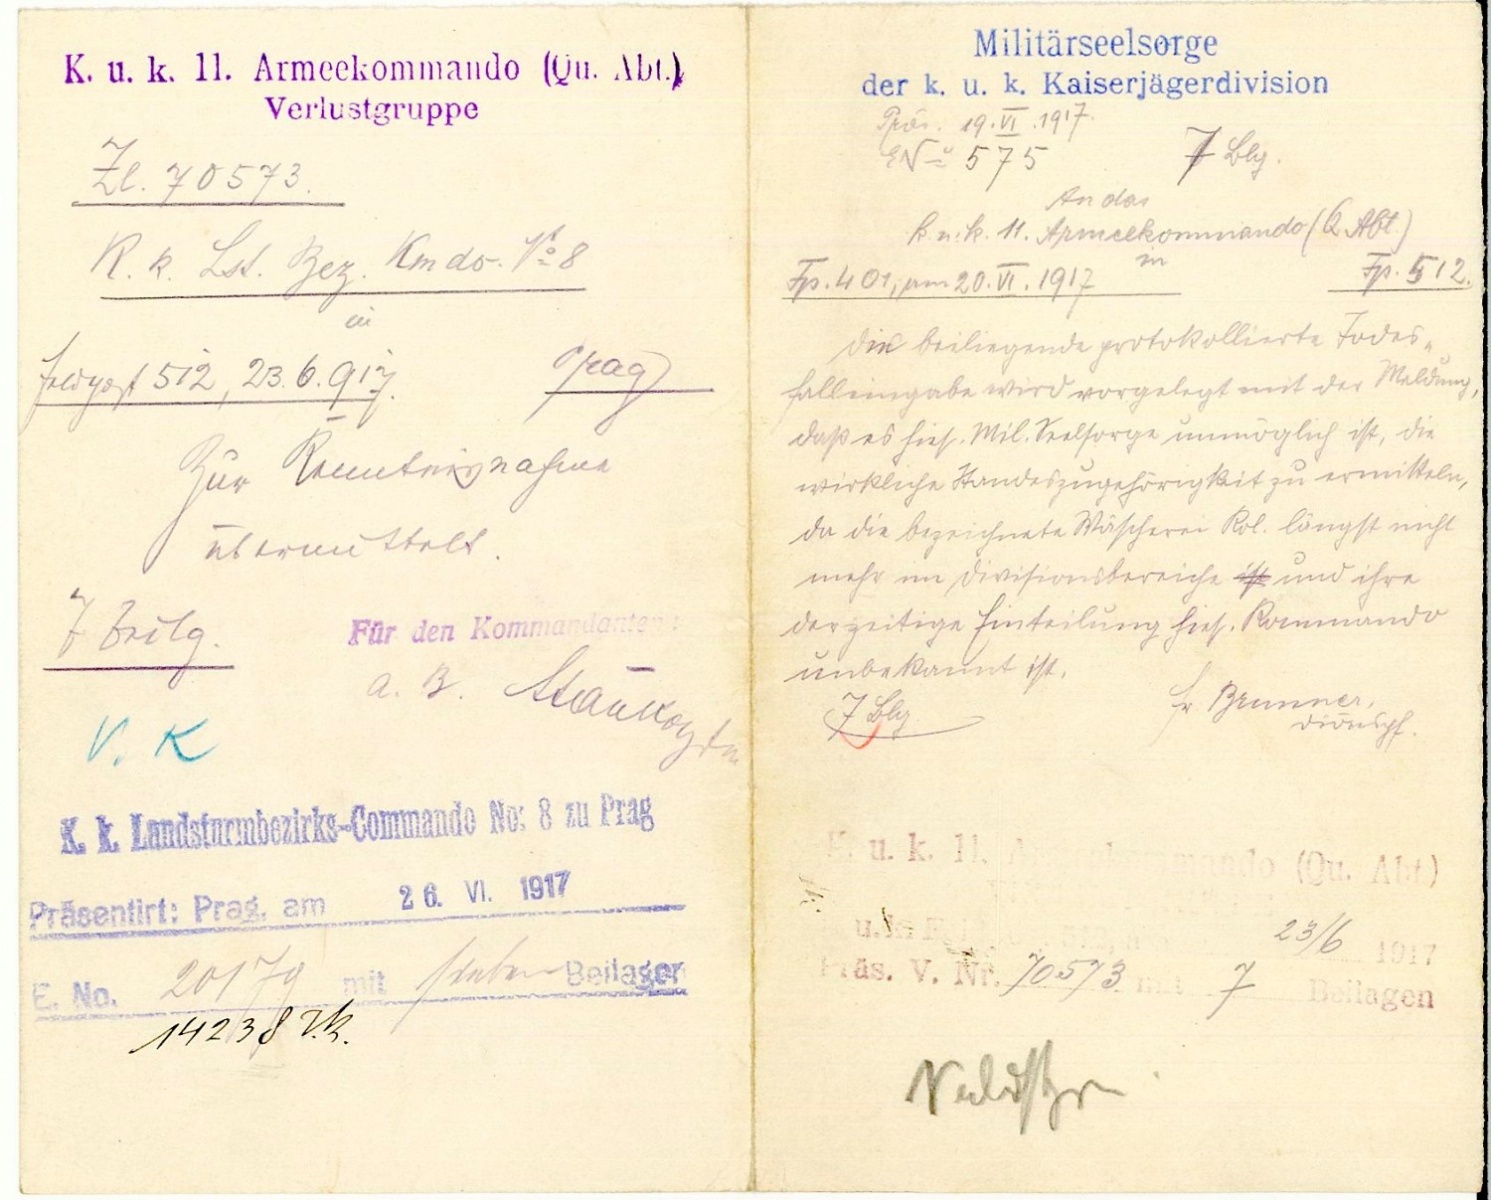 K. u. k. 11. Armeekommando (Qu. Abt.)
Verlustgruppe
Zl. 70573.
K. k. Lst. Bez. Kmdo. No 8
in
Feldpost 512, 23.6.917. Prag
Zur Kenntnisnahme
übermittelt.
7 Beilg.
Für den Kommandanten:
a. B.
V. K
K. k. Landsturmbezirks-Commando No: 8 zu Prag
Präsentirt: Prag, am 26. VI. 1917
E. No. 20179 mit sieben Beilagen
14238
Militärseelsorge
der k. u. k. Kaiserjägerdivision
Präs. 19.VI.1917.
ENo 575 7 Blg.
An das
k. u. k. 11. Armeekommando (Q. Abt.)
in
Fp. 401, am 20.VI.1917 Fp. 512.
Die beiliegende protokollierte Todes-
falleingabe wird vorgelegt mit der Meldung,
daß es hies. Mil. Seelsorge unmöglich ist, die
wirkliche Standeszugehörigkeit zu ermitteln,
da die bezeichnete Wäscherei Kol. längst nicht
mehr im Divisionsbereiche ist und ihre
derzeitige Einteilung hies. Kommando
unbekannt ist.
7 Blg Fr Brunner,
K. u. k. 11. Armeekommando (Qu. Abt.)
512, 23/6 1917
Präs. V. Nr. 70573 mit 7 Beilagen